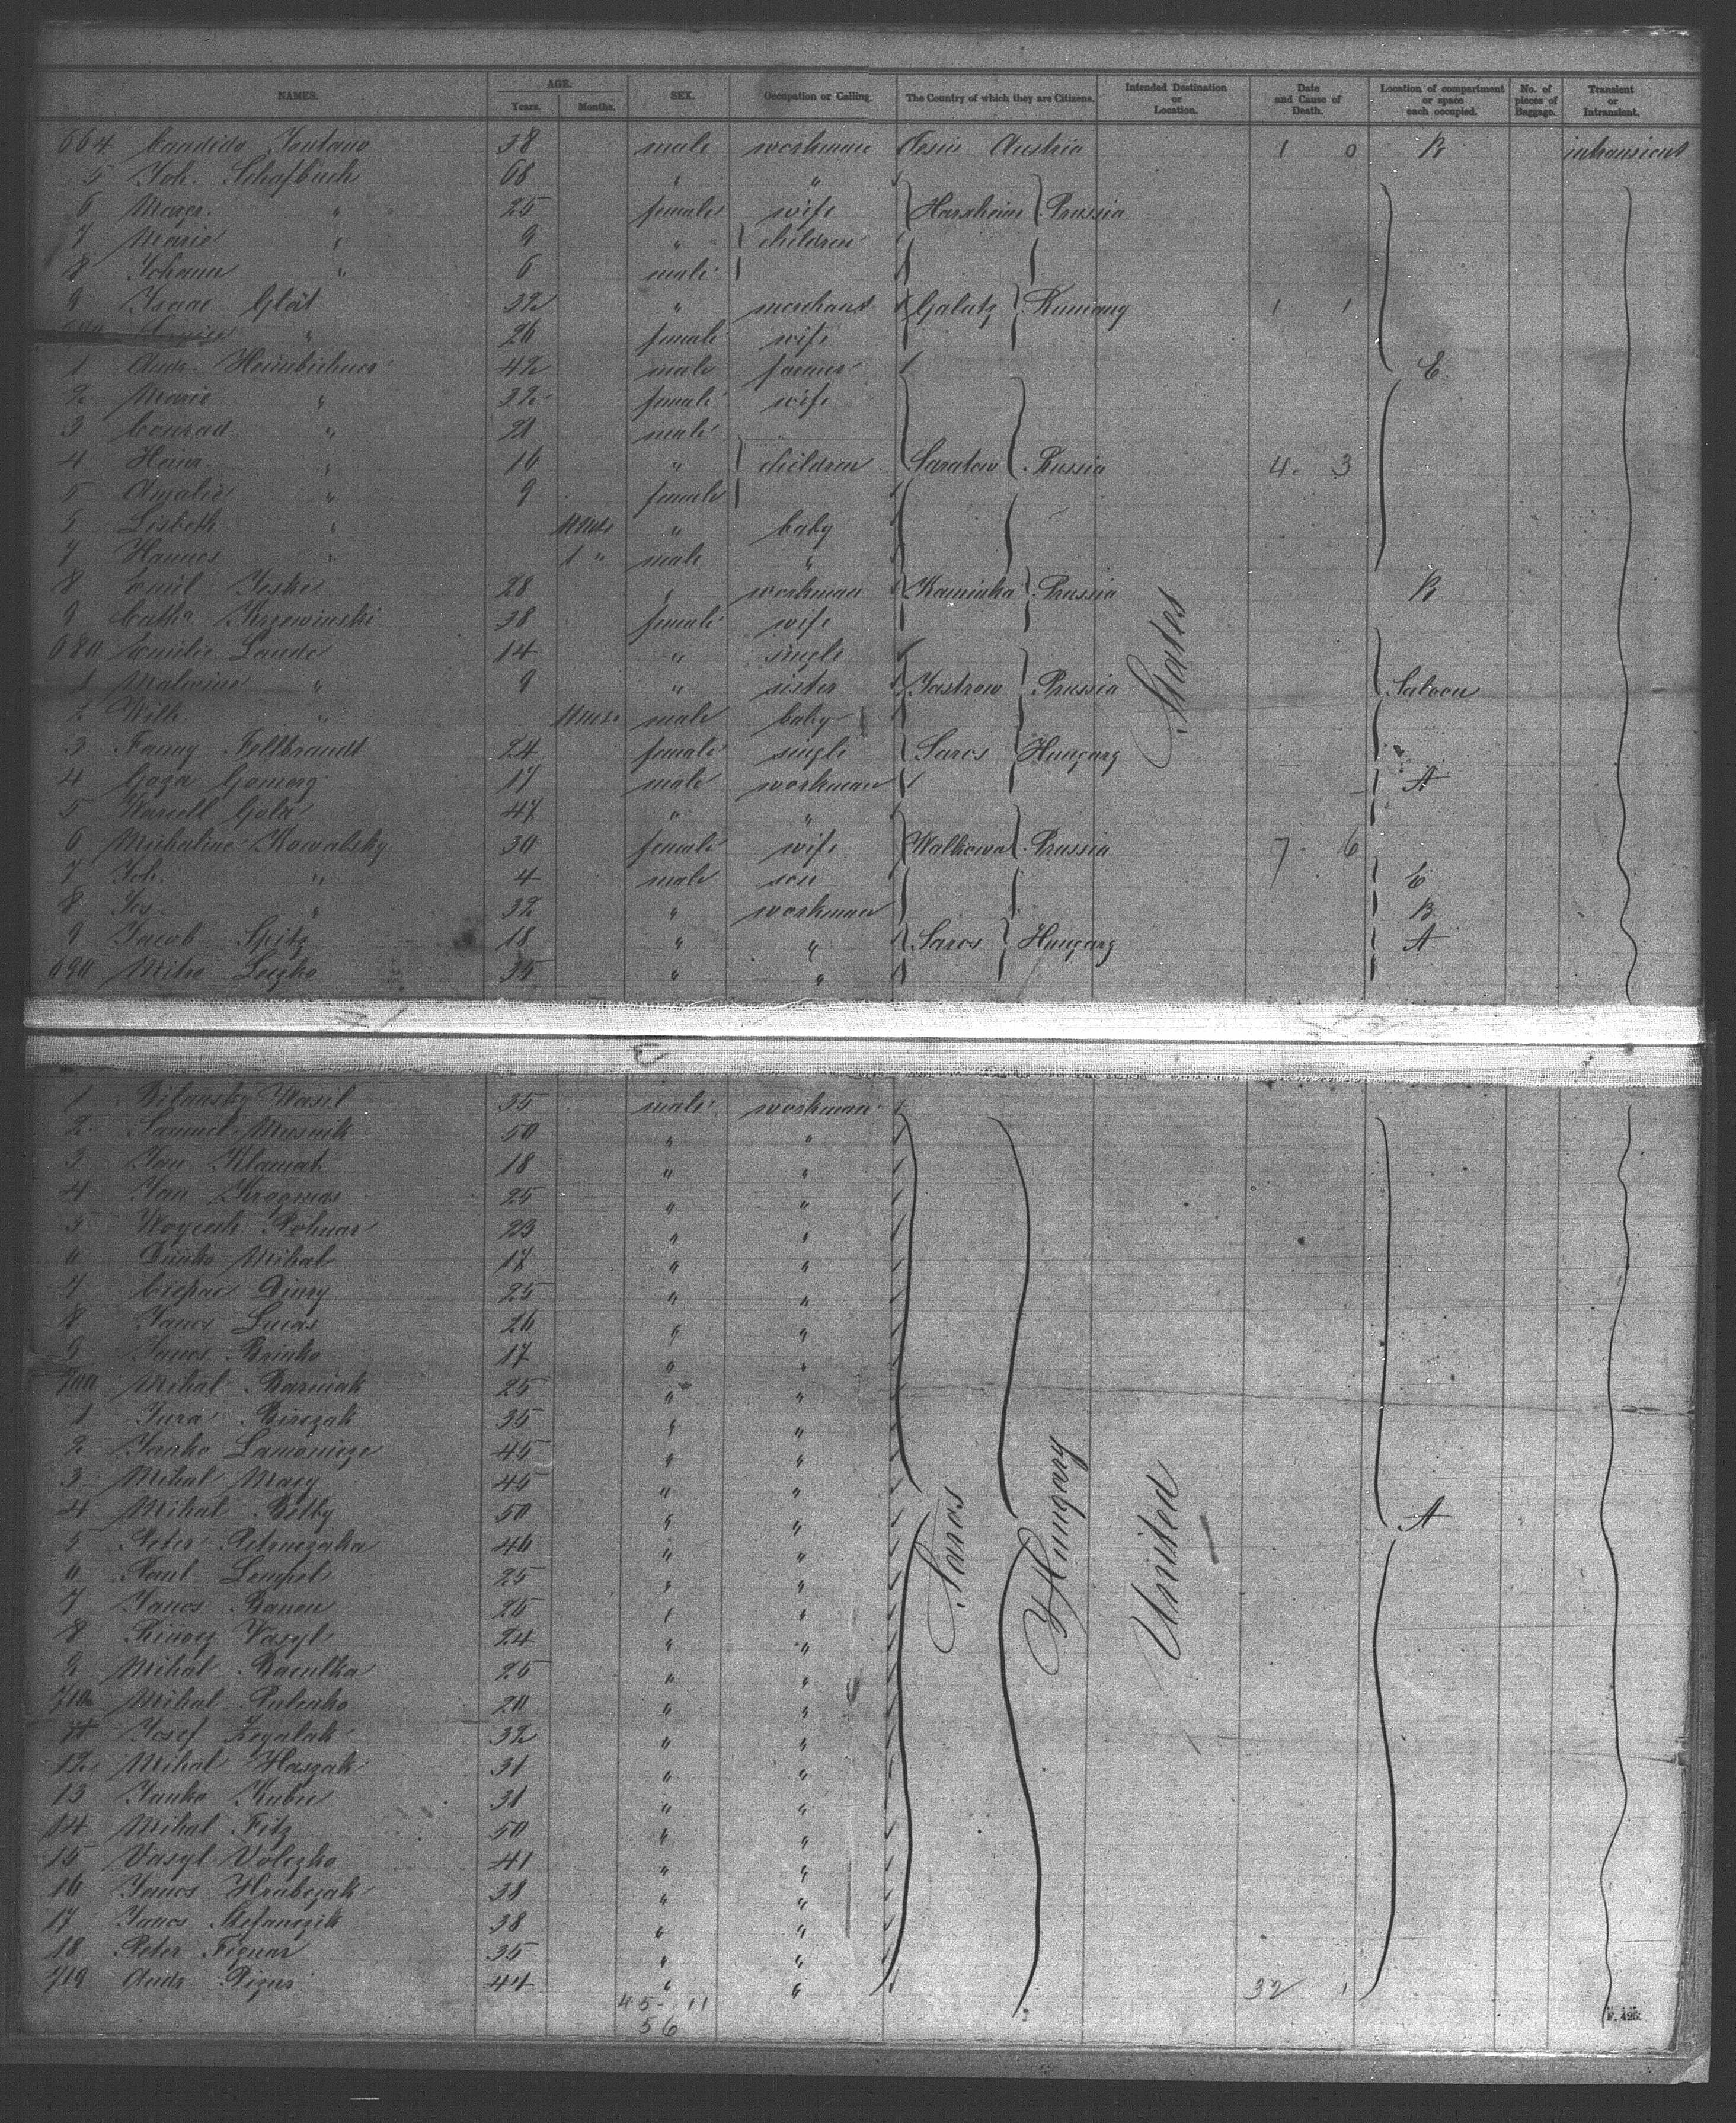 NAMES. AGE. Years. Months. SEX. Occupation or Calling. The Country of which they are Citizens. Intended Destination or Location. Date and Cause of Death. Location of compartment or space each occupied. No. of pieces of Baggage. Transient or Intransient.
664 Candido Fontano 38 male workman Austria 1 0 B intransient
5 Joh. Schafbuch 68 " "
6 Margr. " 25 female wife Harxheim Prussia
7 Marie " 9 " children
8 Johann " 6 male
9 Isaac Glät 32 " merchant Galatz Rumany 1 1
" 26 female wife
1 Andr. 42 male farmer C.
2 Marie " 32 female wife
3 Conrad " 21 male
4 Heinr. " 16 " children Saratow Russia 4. 3
5 Amalie " 9 female
5 Lisbeth " 11 mts " baby
7 Hannes " 1 " male "
8 Emil Jeske 28 " workman Kaminka Prussia B
9 Cath. Krzewinski 38 female wife
680 Emilie Lande 14 " single
1 Malwine " 9 " sister Jastrow Prussia Saloon
2 Wilh. " 11 mts. male baby
3 Fanny Fellbrandt 24 female single Saros Hungary
4 Goza Gomory 17 male workman A
5 Gula 47 " "
6 Michaline Kowalsky 30 female wife Walkowa Prussia 7. 6
7 Joh. " 4 male son C
8 Jos. " 32 " workman B
9 Jacob Spitz 18 " " Saros Hungary A
690 Mitro Luzko 35 " "
1 Bilansky Wasil 35 male workman
2 Samuel Musnik 50 " "
3 Jan Klamat 18 " "
4 Jan 25 " "
5 Woycech Pohnar 23 " "
6 Dinko Mihal 17 " "
7 Ciepac Diury 25 " "
8 Janos Lucas 26 " "
9 Janos Brinko 17 " "
700 Mihal Barniak 25 " "
1 Jura Birczak 35 " "
2 Janko 45 " "
3 Mihal Macy 45 " "
4 Mihal 50 " " A
5 Peter Petruczaka 46 " " Saros Hungary United States
6 Paul Lempel 25 " "
7 Janos Banou 26 " "
8 Vasyl 24 " "
9 Mihal Baculka 25 " "
710 Mihal Pulenko 20 " "
11 Josef Zegalak 32 " "
12 Mihal Haszak 31 " "
13 Janko Kubic 31 " "
14 Mihal Fitz 50 " "
15 Vasyl Volczko 41 " "
16 Janos Hrabczak 38 " "
17 Janos Stefanczik 38 " "
18 Peter Fignar 35 " "
719 Andr. 47 " " 32 1
45 11
56
F. 495.